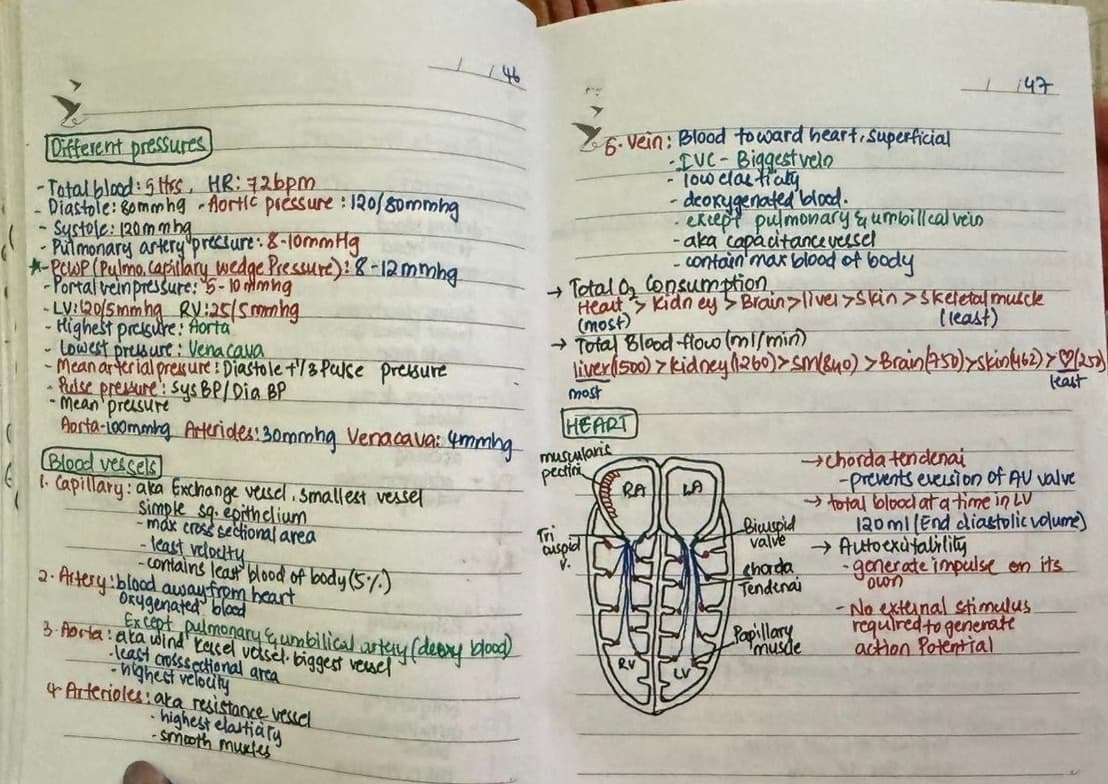 46
Different pressures
- Total blood: 5 ltrs, HR: 72bpm
- Diastole: 80mmhg - Aortic pressure : 120/80mmhg
- Systole: 120mmhg
- Pulmonary artery pressure: 8-10mmHg
* PCWP (Pulmo. Capillary wedge Pressure): 8-12mmhg
- Portal vein pressure: 5-10mmhg
- LV: 120/5mmhg RV: 25/5mmhg
- Highest pressure: Aorta
- Lowest pressure: Venacava
- Mean arterial pressure : Diastole + 1/3 Pulse pressure
- Pulse pressure : Sys BP/Dia BP
- Mean pressure
Aorta-100mmhg Arterides: 30mmhg Venacava: 4mmhg
Blood vessels
1. Capillary: aka Exchange vessel, smallest vessel
Simple sq. epithelium
- max cross sectional area
- least velocity
- contains least blood of body (5%)
2. Artery: blood away from heart
Oxygenated blood
Except pulmonary & umbilical artery (deoxy blood)
3. Aorta: aka wind kessel vessel. biggest vessel
- least crosssectional area
- highest velocity
4. Arterioles: aka resistance vessel
- highest elasticity
- smooth muscles
47
5. Vein: Blood toward heart, superficial
- IVC - Biggest vein
- low elasticity
- deoxygenated blood.
- except pulmonary & umbilical vein
- aka capacitance vessel
- contain max blood of body
→ Total O2 Consumption
Heart > Kidney > Brain > liver > Skin > Skeletal muscle
(most) (least)
→ Total Blood flow (ml/min)
liver(1500) > kidney(1260) > SM(840) > Brain(750) > skin(462) > ♡(250)
most least
HEART
muscularis
pectini
RA LA
Tri
cuspid
v.
Bicuspid
valve
chorda
Tendenai
Papillary
muscle
RV LV
→ chorda tendenai
- prevents eversion of AV valve
→ total blood at a time in LV
120 ml (End diastolic volume)
→ Autoexcitability
- generate impulse on its
own
- No external stimulus
required to generate
action Potential